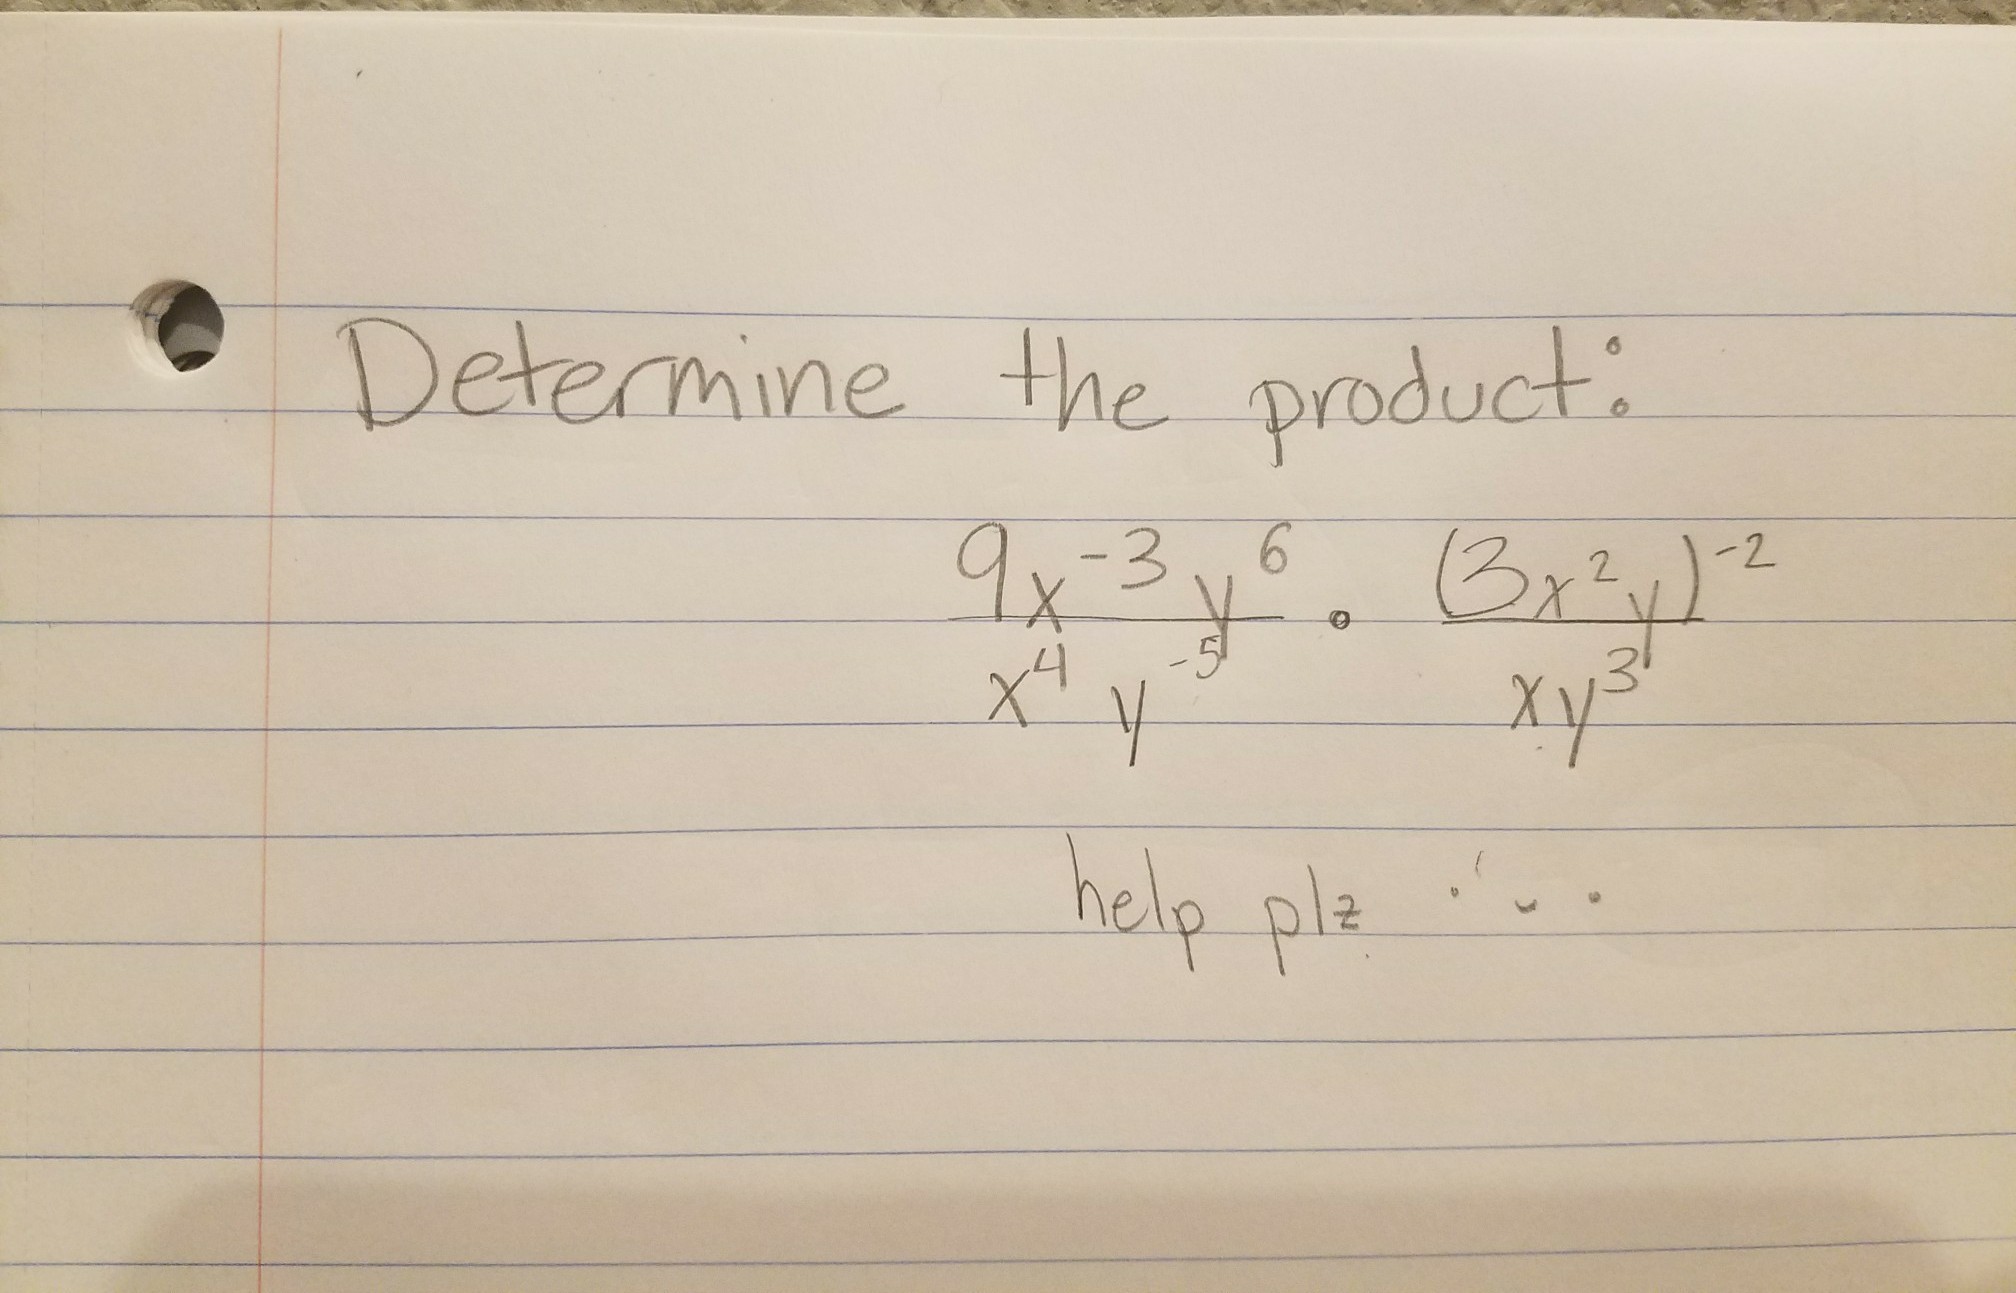 Determine the product:
9x⁻³y⁶ / x⁴y⁻⁵ · (3x²y)⁻² / xy³
help plz